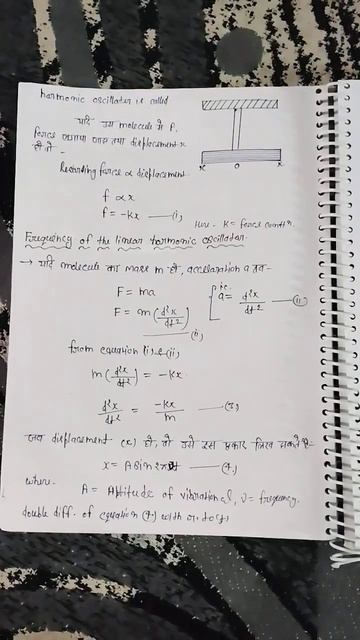 harmonic oscillator is called
यदि उस molecule में F,
force लगाया जाय तथा displacement x
हो तो -
Restoring force ∝ displacement
x o x
f ∝ x
f = -Kx —(i)
Here - K = force const^n.
Frequency of the linear harmonic oscillator-
→ यदि molecule का mass m हो, accelaration a तब-
F = ma
F = m(d²x/dt²) —(ii)
i.e. a = d²x/dt² —(ii)
from equation (i) & (ii)
m(d²x/dt²) = -Kx
d²x/dt² = -Kx/m —(3)
जब displacement (x) हो, तो उसे इस प्रकार लिख सकते है-
x = A sin 2πνt —(4)
where-
A = Aptitude of vibrational, ν = frequency.
double diff. of equation (4) with r. to (t)